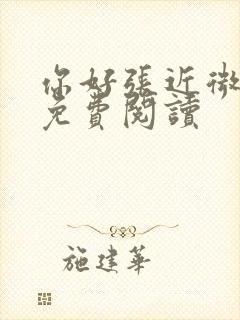 你好張近微
免費閱讀
施建華